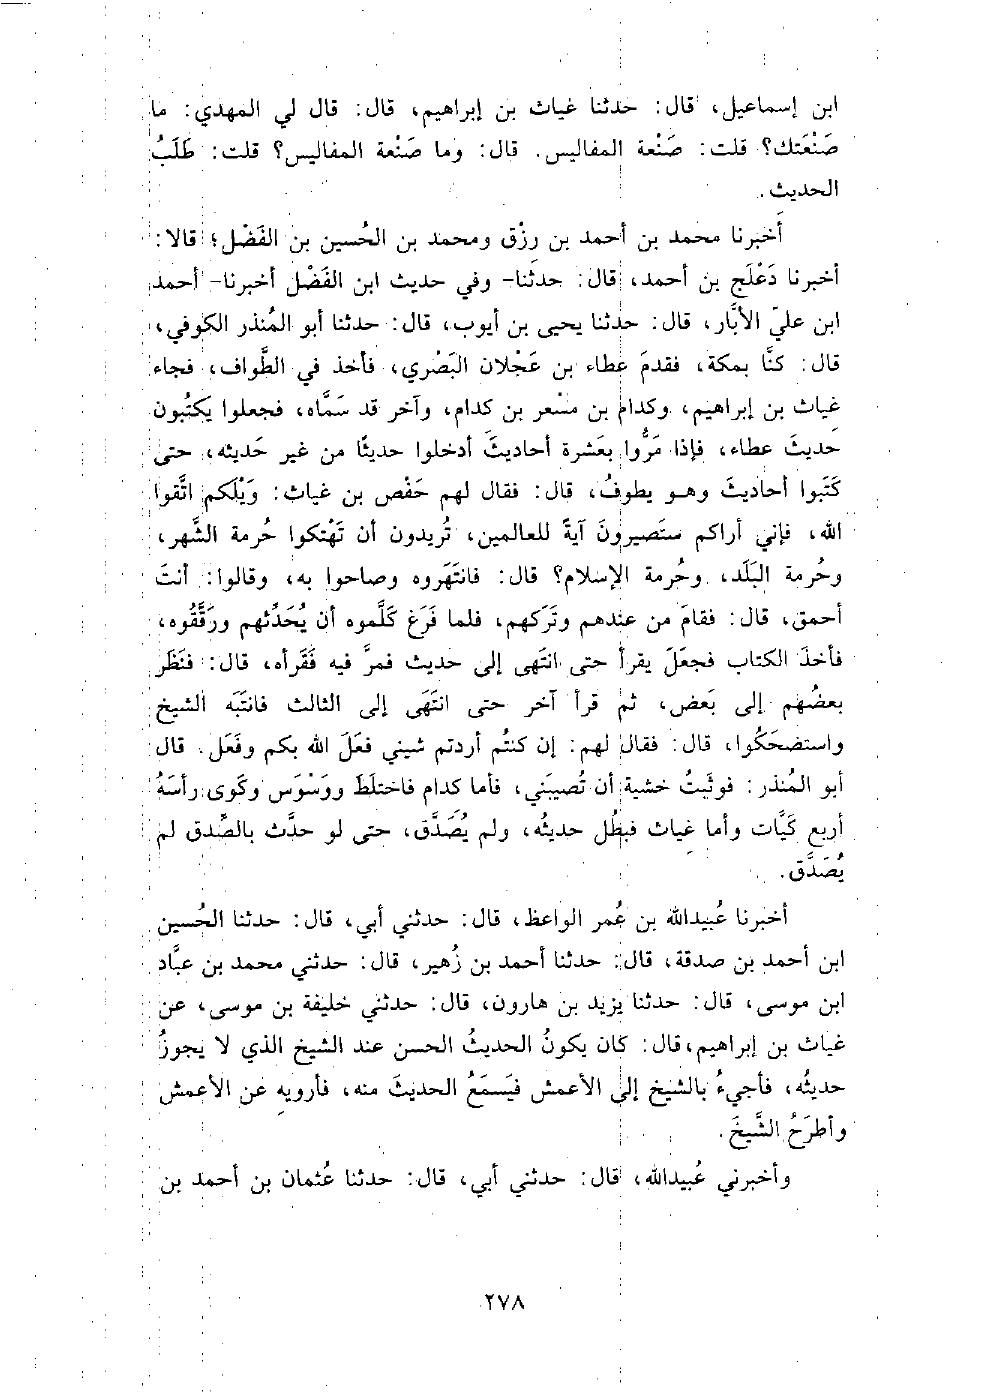 ابن إسماعيل، قال: حدثنا غياث بن إبراهيم، قال: قال لي المهدي: ما
صَنْعَتك؟ قلت: صَنْعة المفاليس. قال: وما صَنْعة المفاليس؟ قلت: طَلَبُ
الحديث.
أخبرنا محمد بن أحمد بن رِزْق ومحمد بن الحُسين بن الفَضْل؛ قالا:
أخبرنا دَعْلَج بن أحمد، قال: حدثنا- وفي حديث ابن الفَضْل أخبرنا- أحمد
ابن عليّ الأبَّار، قال: حدثنا يحيى بن أيوب، قال: حدثنا أبو المُنذر الكوفي،
قال: كنَّا بمكة، فقدمَ عطاء بن عَجْلان البَصْري، فأخذ في الطَّواف، فجاء
غياث بن إبراهيم، وكدام بن مسْعر بن كدام، وآخر قد سَمَّاه، فجعلوا يَكتُبون
حديثَ عطاء، فإذا مَرُّوا بعَشرة أحاديثَ أدخلوا حديثًا من غير حَديثه، حتى
كَتَبوا أحاديثَ وهو يطوفُ، قال: فقال لهم حَفْص بن غياث: وَيْلَكم اتَّقوا
الله، فإني أراكم ستَصيرونَ آيةً للعالمين، تُريدون أن تَهْتكوا حُرمة الشَّهر،
وحُرمة البَلَد، وحُرمة الإسلام؟ قال: فانتَهَروه وصاحوا به، وقالوا: أنتَ
أحمق، قال: فقامَ من عندهم وتَرَكهم، فلما فَرَغ كَلَّموه أن يُحَدِّثهم ورَقَّقُوه،
فأخذَ الكتاب فجعَلَ يقرأ حتى انتَهى إلى حديث فمرَّ فيه فَقَرأه، قال: فنَظَر
بعضُهم إلى بَعض، ثم قرأ آخر حتى انتَهَى إلى الثالث فانتَبَه الشيخ
واستضحَكُوا، قال: فقال لهم: إن كنتُم أردتم شيني فعَلَ الله بكم وفَعَل. قال
أبو المُنذر: فوثَبتُ خشية أن تُصيبَني، فأما كدام فاختلَطَ ووَسْوَس وكَوى رأسَهُ
أربع كَيَّات وأما غياث فبطُل حديثُه، ولم يُصَدَّق، حتى لو حدَّث بالصِّدق لم
يُصَدَّق.
أخبرنا عُبيدالله بن عُمر الواعظ، قال: حدثني أبي، قال: حدثنا الحُسين
ابن أحمد بن صدقة، قال: حدثنا أحمد بن زُهير، قال: حدثني محمد بن عبَّاد
ابن موسى، قال: حدثنا يزيد بن هارون، قال: حدثني خليفة بن موسى، عن
غياث بن إبراهيم، قال: كان يكونُ الحديثُ الحسن عند الشيخ الذي لا يجوزُ
حديثُه، فأجيءُ بالشيخ إلى الأعمش فيَسمَعُ الحديثَ منه، فأرويه عن الأعمش
وأطرَحُ الشَّيخَ.
وأخبرني عُبيدالله، قال: حدثني أبي، قال: حدثنا عُثمان بن أحمد بن
٢٧٨